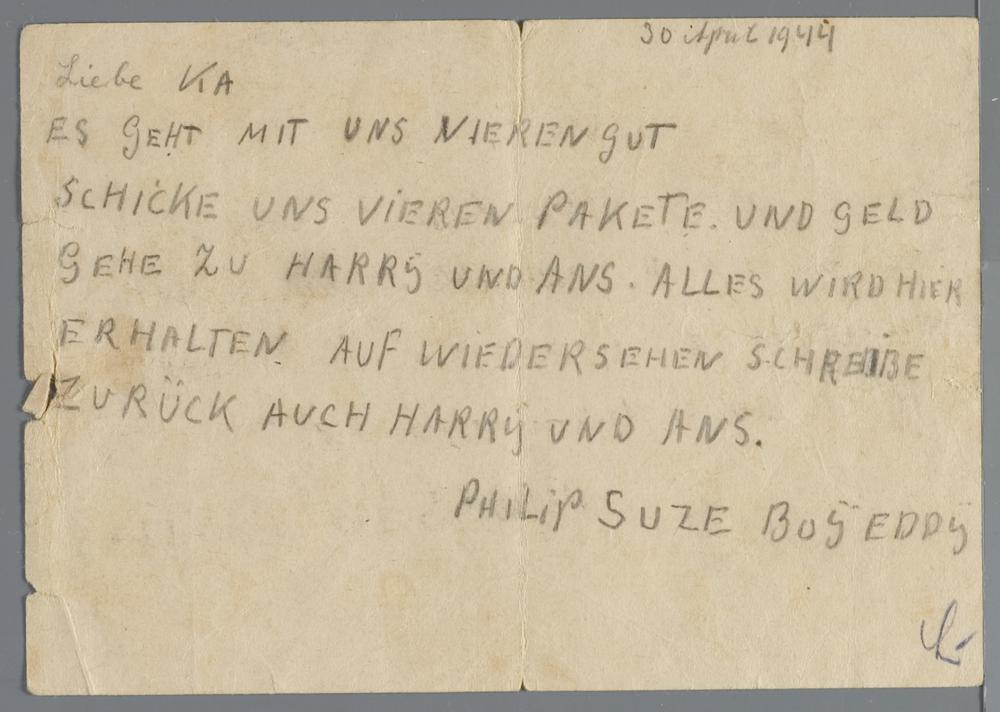 30 April 1944
Liebe KA
ES GEHT MIT UNS VIEREN GUT
SCHICKE UNS VIEREN PAKETE. UND GELD
GEHE ZU HARRÿ UND ANS. ALLES WIRD HIER
ERHALTEN. AUF WIEDERSEHEN SCHREIBE
ZURÜCK AUCH HARRÿ UND ANS.
PHILIP SUZE BOÿ EDDÿ